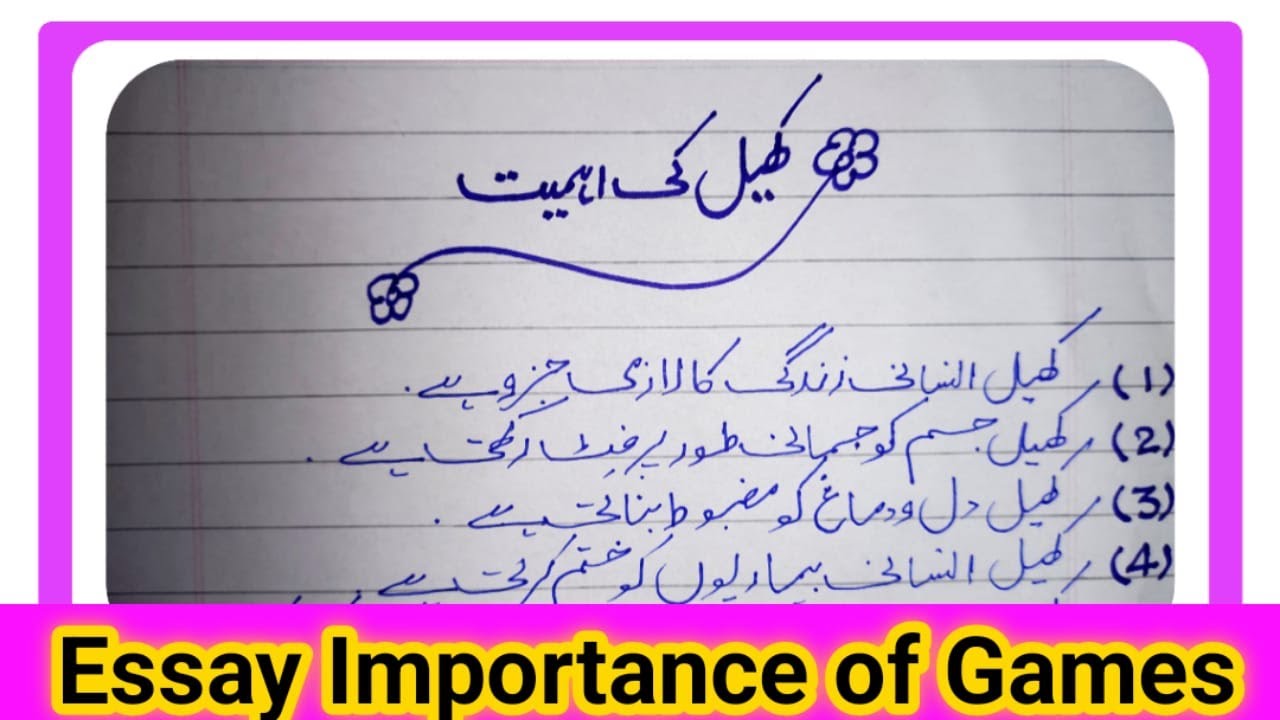 کھیل کی اہمیت
(1) کھیل انسانی زندگی کا لازمی جزو ہے.
(2) کھیل جسم کو جسمانی طور پر فِٹ رکھتے ہے.
(3) کھیل دل و دماغ کو مضبوط بناتے ہے.
(4) کھیل انسانی بیماریوں کو ختم کرتے ہے.
Essay Importance of Games